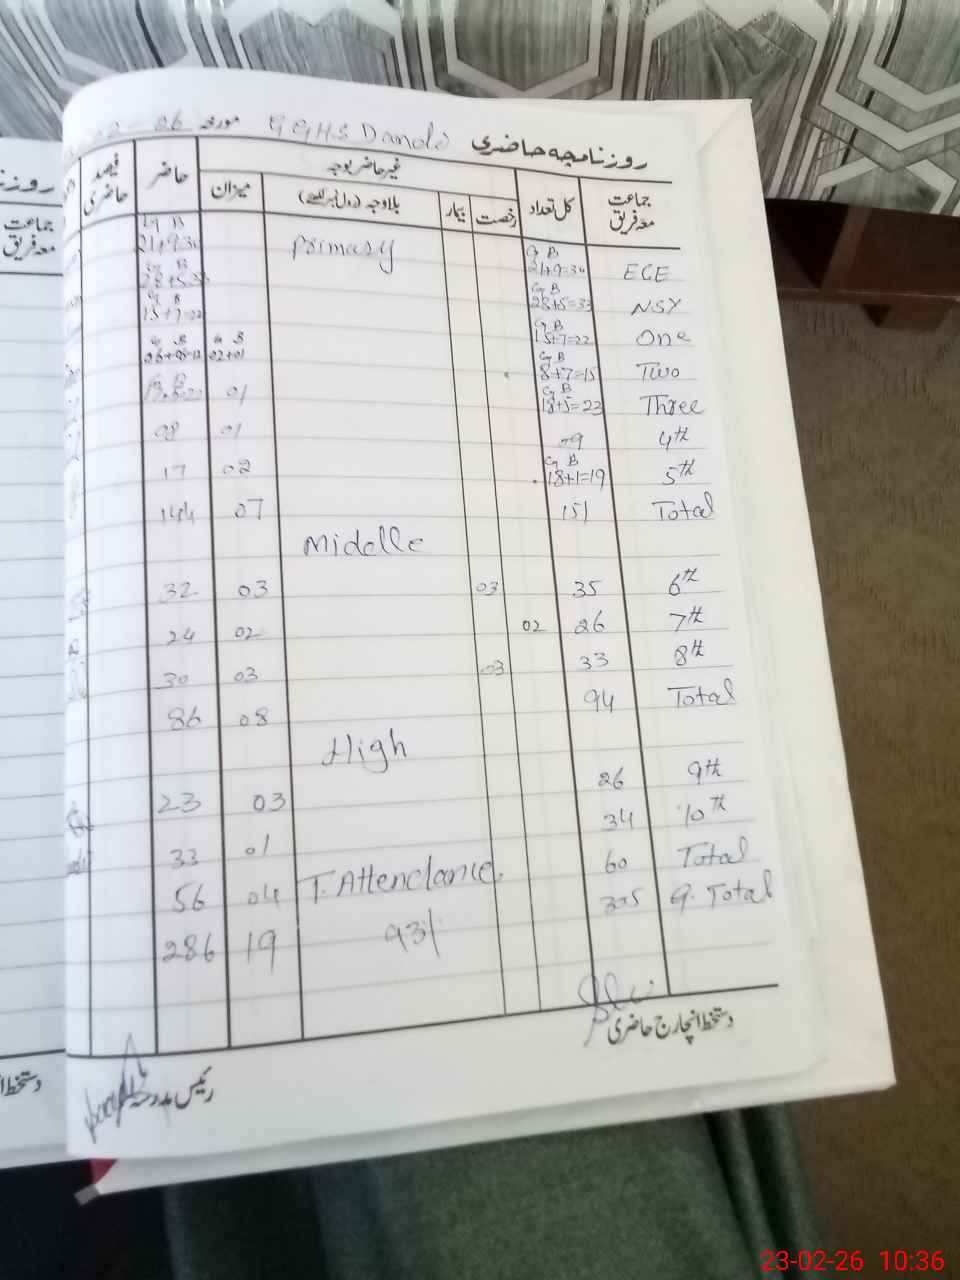 روزنامچہ حاضری G GHS Dandi مورخہ
جماعت معہ فریق
کل تعداد
غیر حاضر بوجہ
رخصت
بیمار
بلاوجہ (رول نمبر لکھیے)
میزان
حاضر
فیصد حاضری
Primary
ECE G B 21+9=30 G B 21+9=30
NSY G B 28+5=33 G B 28+5=33
One G B 15+7=22 G B 15+7=22
Two G B 8+7=15 G B 02+01 G B
Three G B 18+5=23 01 G B
4th 09 01 08
5th G B 18+1=19 02 17
Total 151 07 144
Midelle
6th 35 03 03 32
7th 26 02 02 24
8th 33 03 03 30
Total 94 08 86
High
9th 26 03 23
10th 34 01 33
Total 60 04 56
T. Attendance
G. Total 305 19 286
93%
دستخط انچارج حاضری
رئیس مدرسہ
روزنا
جماعت معہ فریق
دستخط ا
23-02-26 10:36